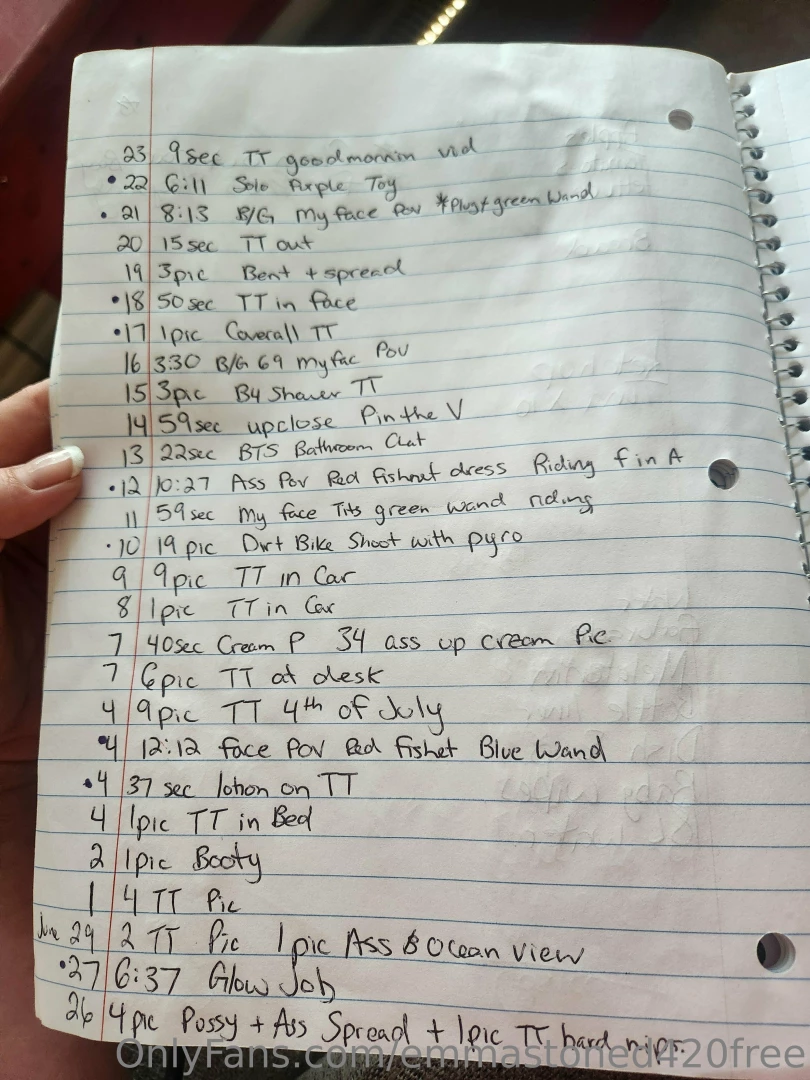 23 9sec TT goodmornin vid
• 22 6:11 Solo Purple Toy
• 21 8:13 B/G My face Pov *Plug + green Wand
20 15 sec TT out
19 3pic Bent + spread
• 18 50 sec TT in face
• 17 1pic Coverall TT
16 3:30 B/G 69 my fac Pov
15 3pic B4 Shower TT
14 59sec up close P in the V
13 22sec BTS Bathroom Chat
• 12 10:27 Ass Pov Red fishnet dress Riding f in A
11 59 sec My face Tits green wand riding
• 10 19 pic Dirt Bike Shoot with pyro
9 9pic TT in Car
8 1pic TT in Car
7 40sec Cream P 34 ass up cream Pic
7 6pic TT at desk
4 9pic TT 4th of July
• 4 12:12 face POV Red fishet Blue Wand
• 4 37 sec lotion on TT
4 1pic TT in Bed
2 1pic Booty
1 4 TT Pic
June 29 2 TT Pic 1 pic Ass & Ocean view
• 27 6:37 Glow Job
26 4pic Pussy + Ass Spread + 1pic TT hard nips.
OnlyFans.com/emmastoned420free